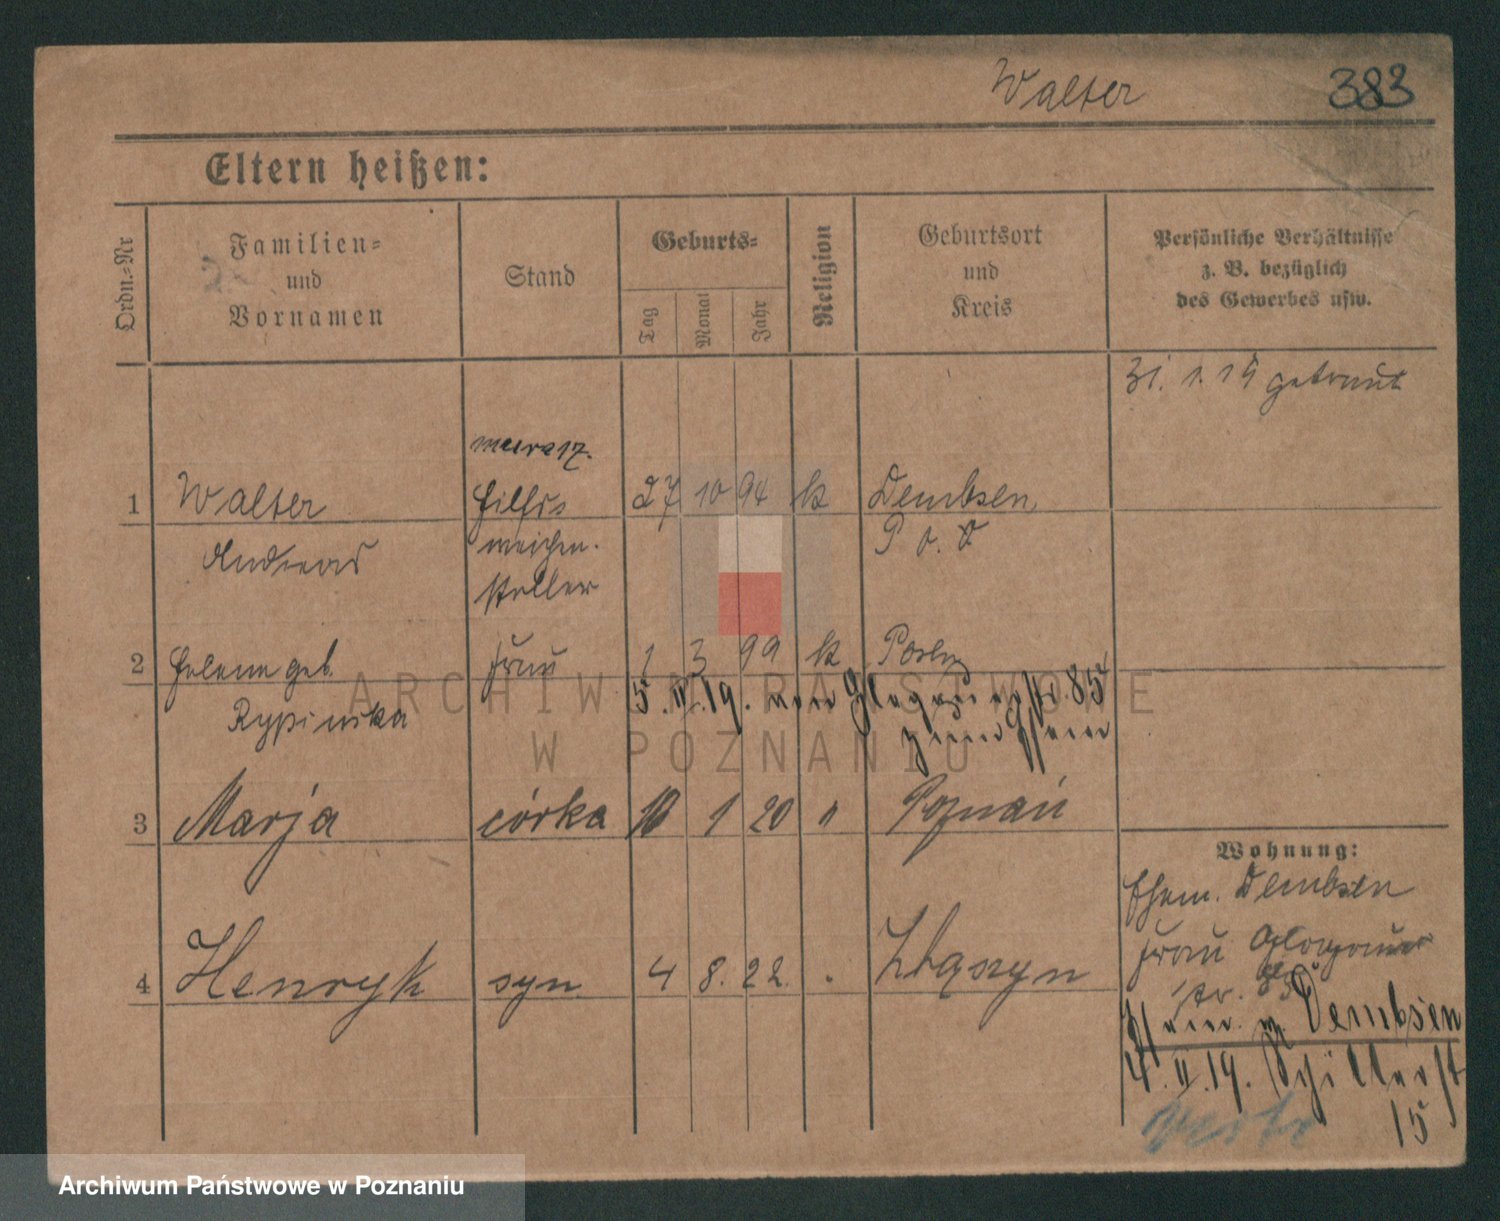 Walter 383
Eltern heißen:
Ordn.-Nr
Familien-
und
Vornamen
Stand
Geburts-
Tag
Monat
Jahr
Religion
Geburtsort
und
Kreis
Persönliche Verhältnisse
z. B. bezüglich
des Gewerbes usw.
31. 1. 19 getraut
1 Walter Hilfs 27 10 94 k Dembsen
Andreas weichen- P. O.
steller
2 Helene geb. Frau 1 3 99 k Posen
Rypinska
5. II. 19. von Glogauerstr. 85
zum Mann
3 Marja córka 10 1 20 " Poznań
4 Henryk syn 4 8. 22. Zbąszyn
Wohnung:
Ehem. Dembsen
Frau Glogauer
str. 85
Dembsen
4. II. 19. Schillerst
15
verte
ARCHIWUM PAŃSTWOWE
W POZNANIU
Archiwum Państwowe w Poznaniu